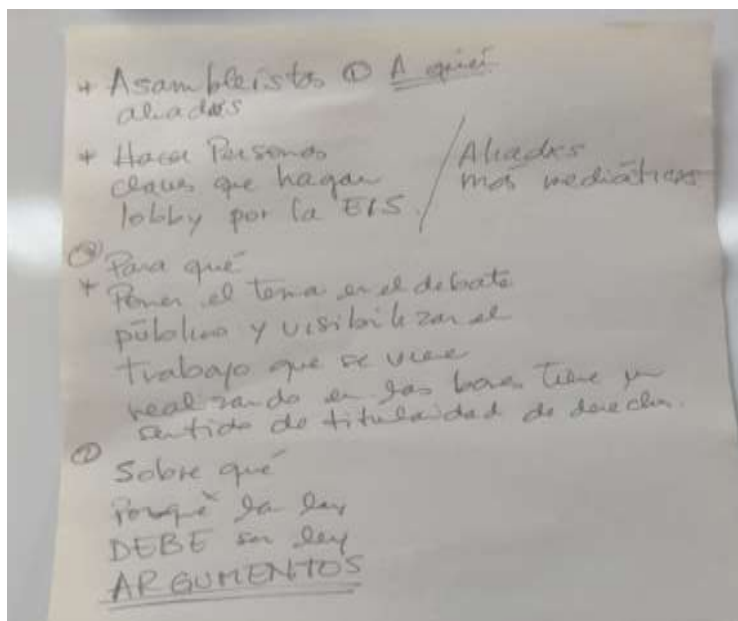 + Asambleistas ① A quién
aliados
+ Hacer Personas
claves que hagan
lobby por la EIS.
/ Aliados
más mediáticos
Para qué
+ Poner el tema en el debate
público y visibilizar el
trabajo que se viene
realizando en las bases tiene un
sentido de titularidad de derechos.
Sobre qué
Porqué la ley
DEBE ser ley
ARGUMENTOS